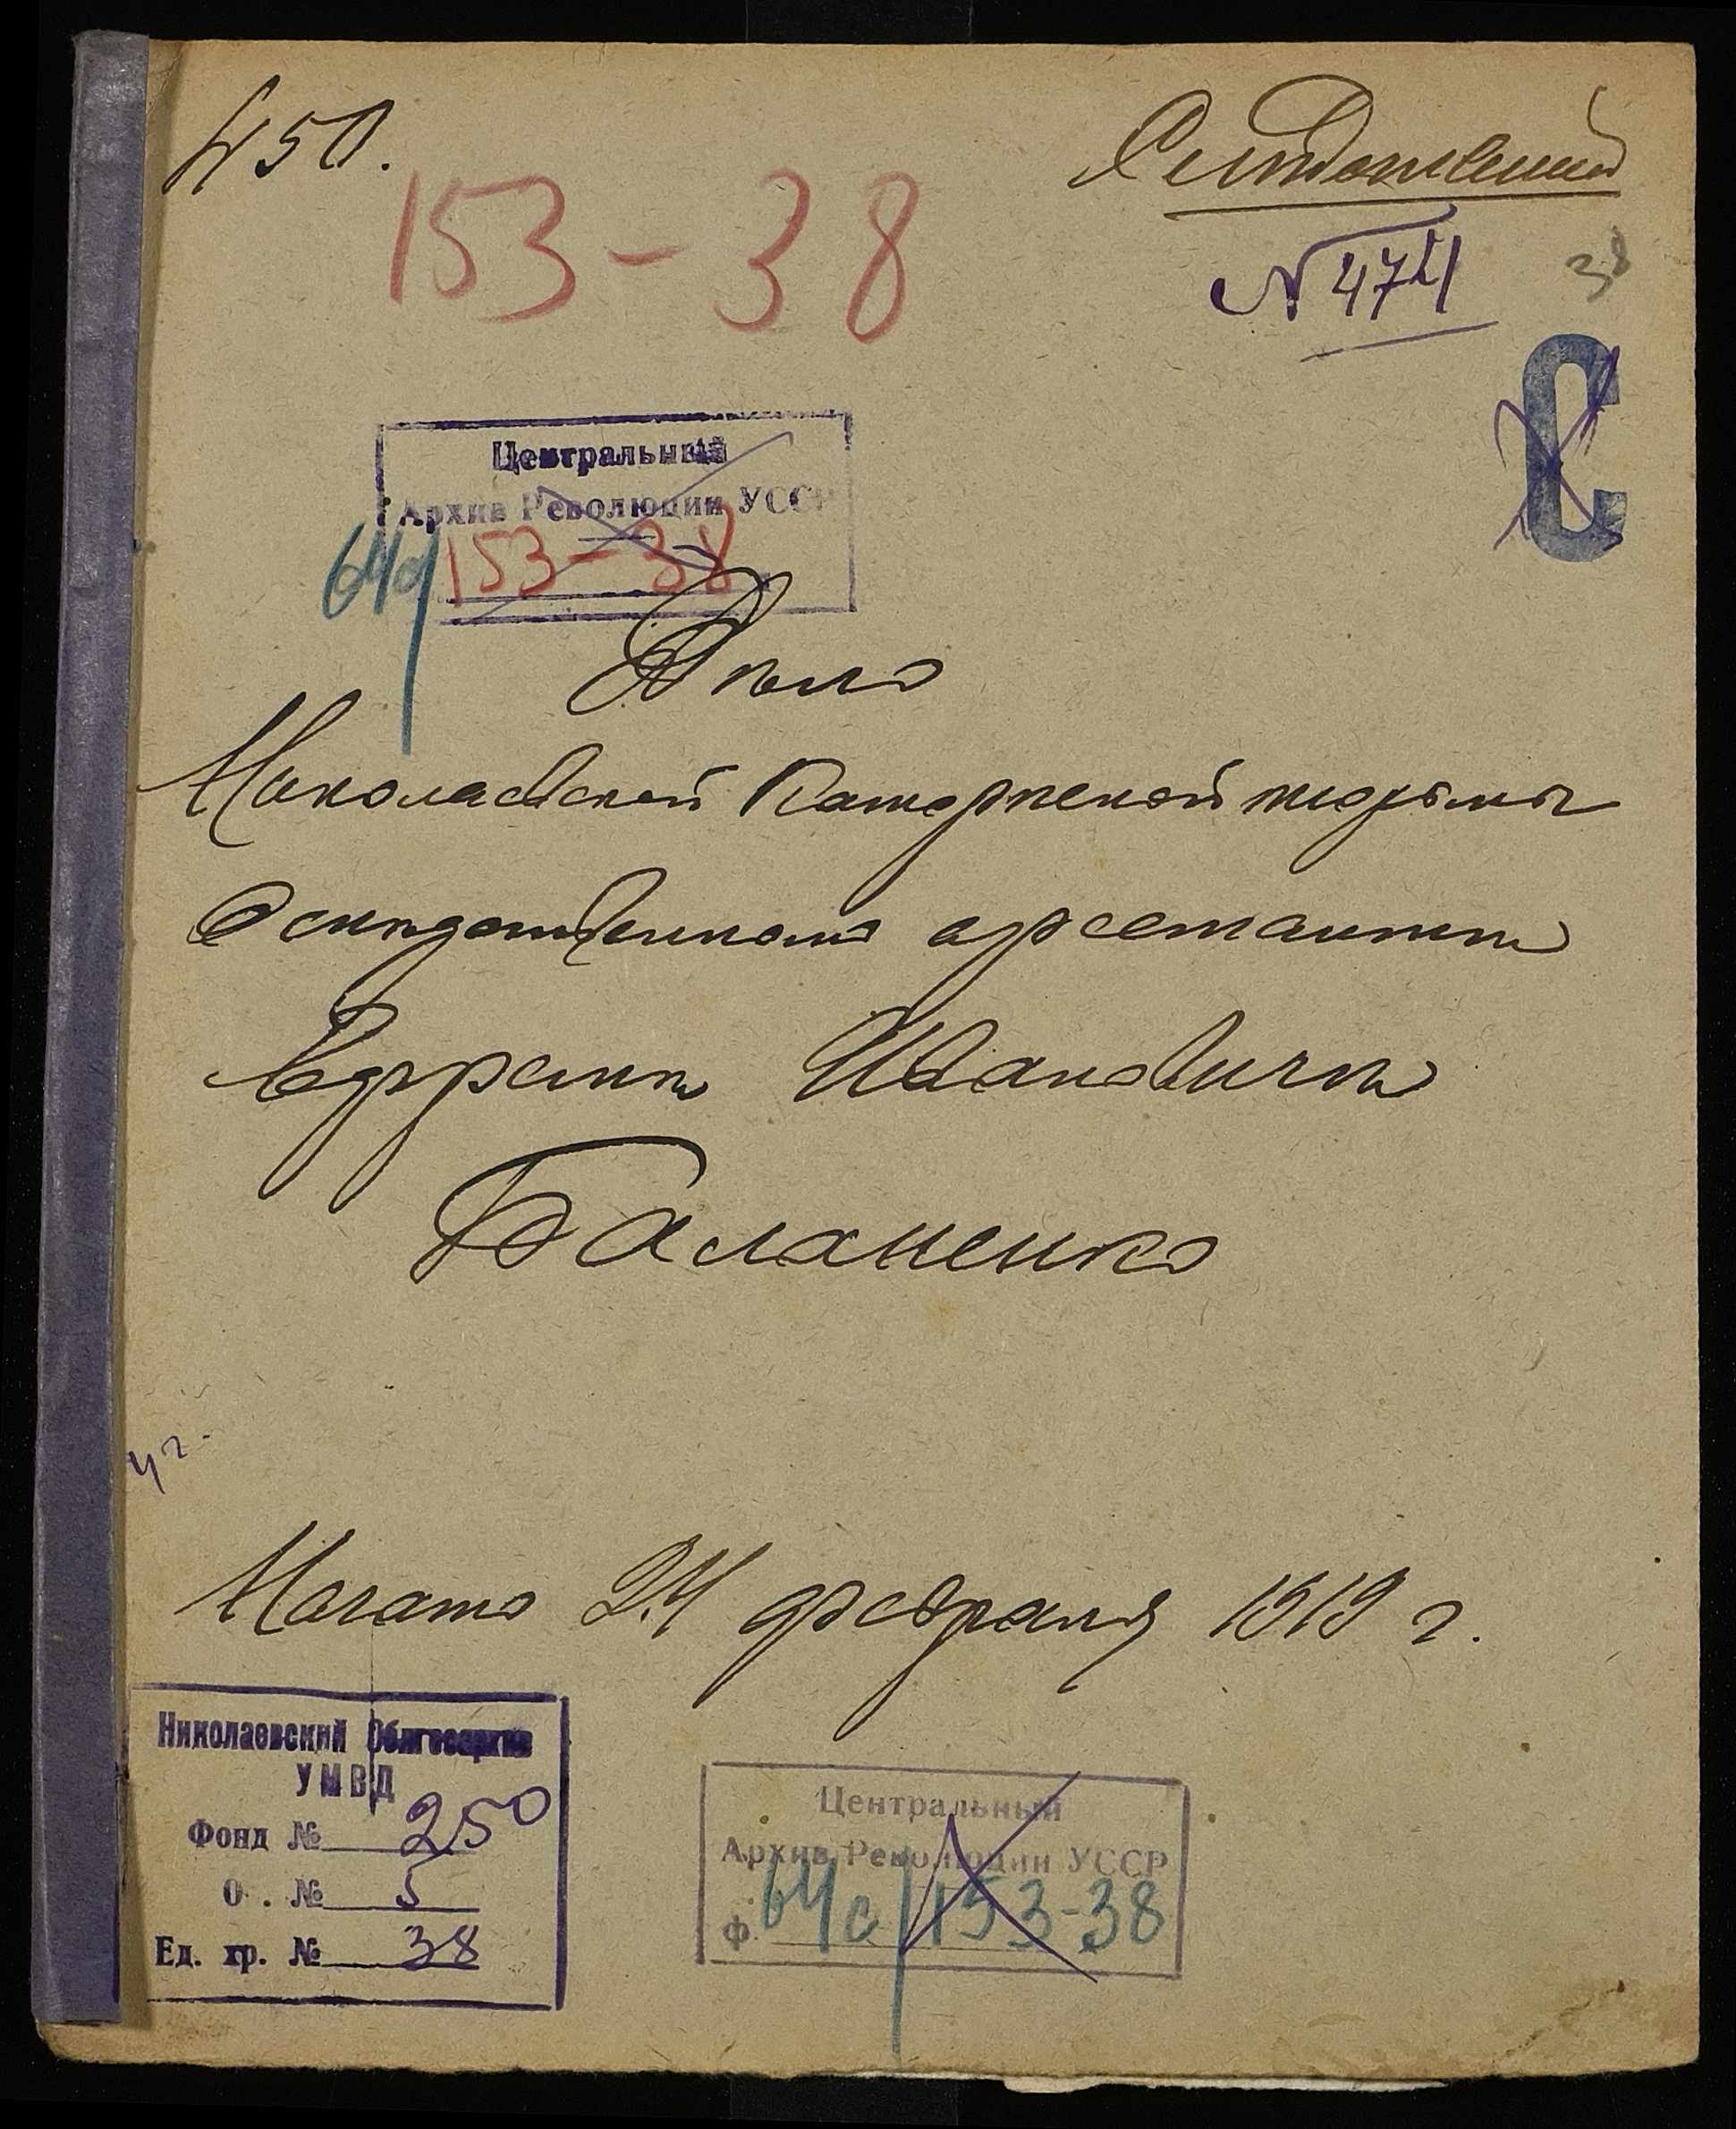 450.
Следственный
153-38
N 474
38
С
Центральный
Архив Революции УССР
64с/153-38
Дело
Николаевской Каторжской тюрьмы
О следственном арестанте
Ефреме Ивановиче
Баланенко
Начато 24 февраля 1919 г.
Николаевский Облгосархив
УМВД
Фонд № 250
О . № 5
Ед. хр. № 38
Центральный
Архив Революции УССР
ф. 64с/153-38